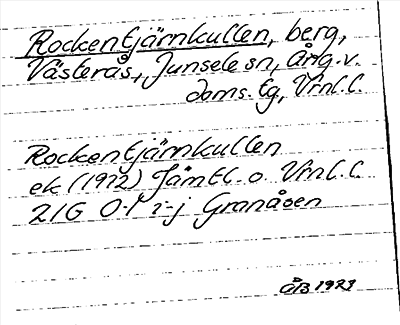 Rockentjärnkullen, berg,
Västerås, Junsele sn, Ång. v.
doms. tg, Vrnl. l.
Rockentjärnkullen
ek (1972) Jämtl. o. Vrnl. l.
21G 0-1 i-j Granåsen
ÅB 1973